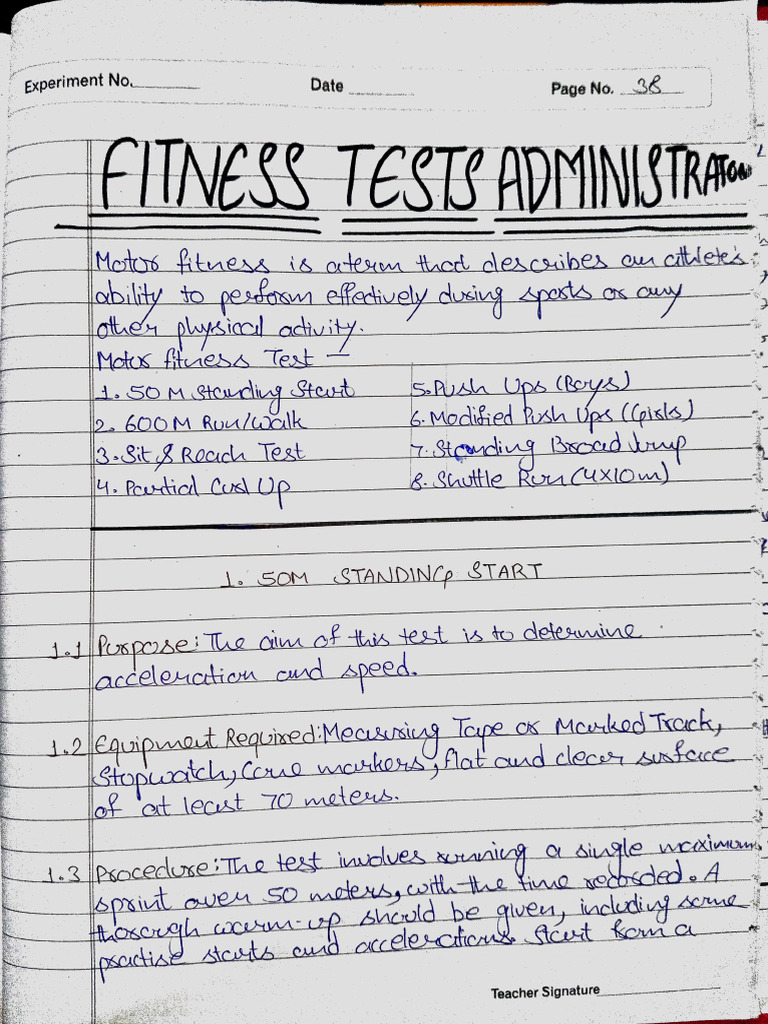 Experiment No. Date Page No. 38
FITNESS TESTS ADMINISTRATION
Motor fitness is a term that describes an athlete's
ability to perform effectively during sports or any
other physical activity.
Motor fitness Test —
1. 50 M Standing Start
2. 600 M Run/Walk
3. Sit & Reach Test
4. Partial Curl Up
5. Push Ups (Boys)
6. Modified Push Ups (Girls)
7. Standing Broad Jump
8. Shuttle Run (4x10m)
1. 50M STANDING START
1.1 Purpose: The aim of this test is to determine
acceleration and speed.
1.2 Equipment Required: Measuring Tape or Marked Track,
Stopwatch, Cone markers, flat and clear surface
of at least 70 meters.
1.3 Procedure: The test involves running a single maximum
sprint over 50 meters, with the time recorded. A
thorough warm-up should be given, including some
practise starts and accelerations. Start from a
Teacher Signature